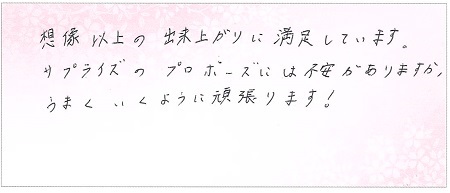 想像以上の出来上がりに満足しています。
サプライズのプロポーズには不安がありますが、
うまくいくように頑張ります!